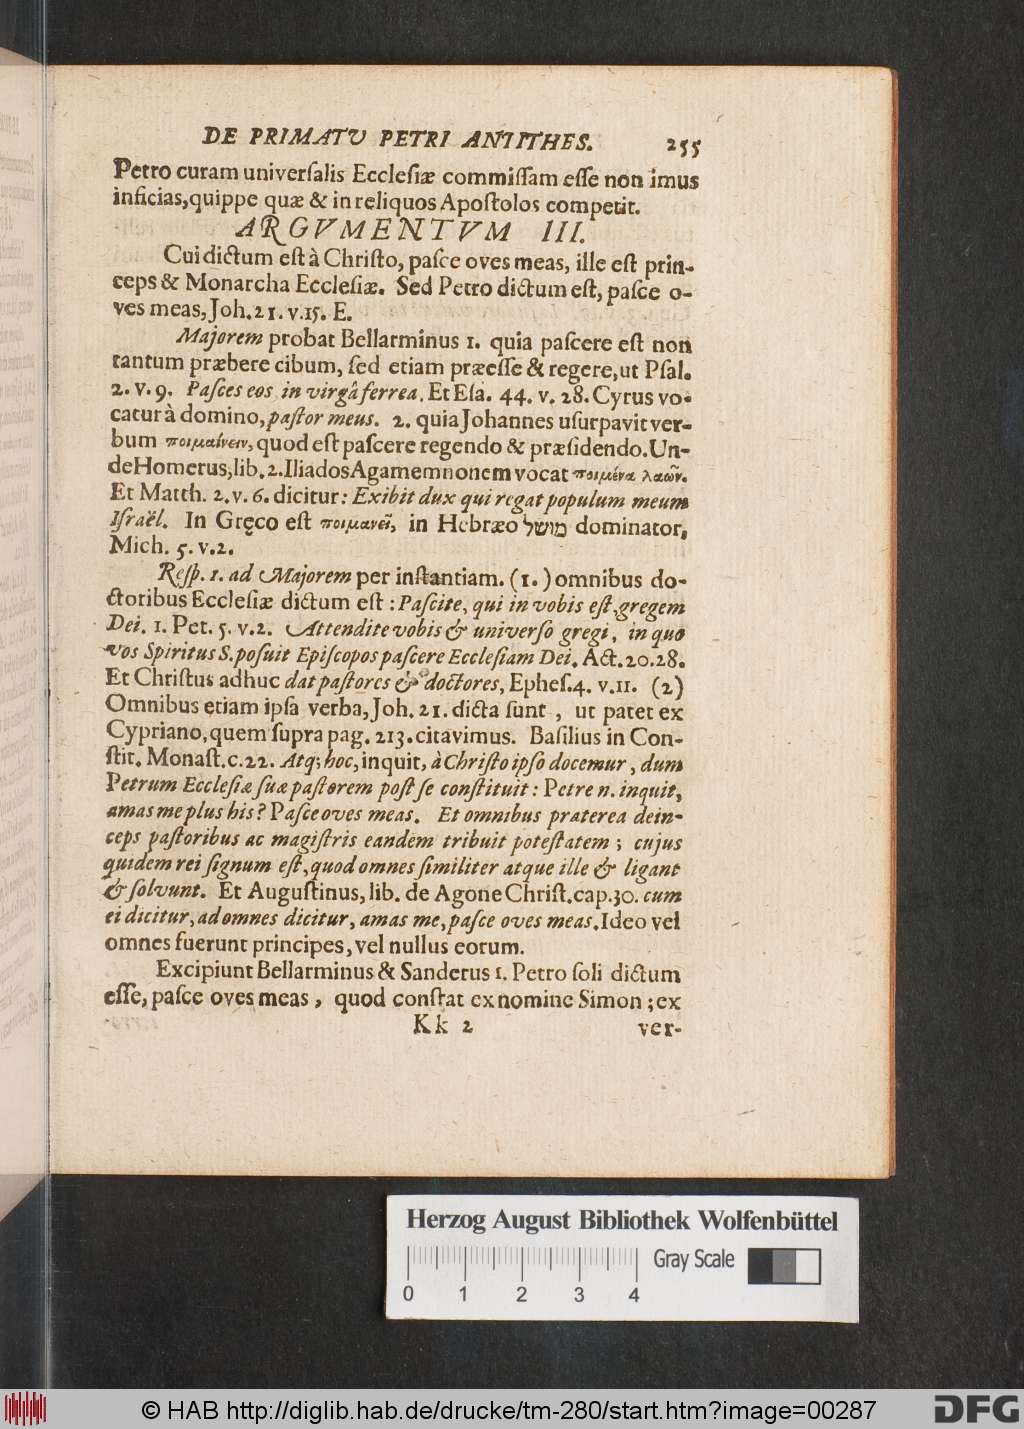 DE PRIMATU PETRI ANTITHES. 255
Petro curam universalis Ecclesiæ commissam esse non imus
inficias, quippe quæ & in reliquos Apostolos competit.
ARGVMENTVM III.
Cui dictum est à Christo, pasce oves meas, ille est prin-
ceps & Monarcha Ecclesiæ. Sed Petro dictum est, pasce o-
ves meas, Joh. 21. v. 15. E.
Majorem probat Bellarminus 1. quia pascere est non
tantum præbere cibum, sed etiam præesse & regere, ut Psal.
2. v. 9. Pasces eos in virgâ ferrea. Et Esa. 44. v. 28. Cyrus vo-
catur à domino, pastor meus. 2. quia Johannes usurpavit ver-
bum ποιμαίνειν, quod est pascere regendo & præsidendo. Un-
de Homerus, lib. 2. Iliados Agamemnonem vocat ποιμένα λαῶν.
Et Matth. 2. v. 6. dicitur: Exibit dux qui regat populum meum
Israël. In Gręco est ποιμανεῖ, in Hebræo מושל dominator,
Mich. 5. v. 2.
Resp. 1. ad Majorem per instantiam. (1.) omnibus do-
ctoribus Ecclesiæ dictum est: Pascite, qui in vobis est, gregem
Dei. 1. Pet. 5. v. 2. Attendite vobis & universo gregi, in quo
vos Spiritus S. posuit Episcopos pascere Ecclesiam Dei. Act. 20. 28.
Et Christus adhuc dat pastores & doctores, Ephes. 4. v. 11. (2)
Omnibus etiam ipsa verba, Joh. 21. dicta sunt, ut patet ex
Cypriano, quem supra pag. 213. citavimus. Basilius in Con-
stit. Monast. c. 22. Atq; hoc, inquit, à Christo ipso docemur, dum
Petrum Ecclesiæ suæ pastorem post se constituit: Petre n. inquit,
amas me plus his? Pasce oves meas. Et omnibus praterea dein-
ceps pastoribus ac magistris eandem tribuit potestatem; cujus
quidem rei signum est, quod omnes similiter atque ille & ligant
& solvunt. Et Augustinus, lib. de Agone Christ. cap. 30. cum
ei dicitur, ad omnes dicitur, amas me, pasce oves meas. Ideo vel
omnes fuerunt principes, vel nullus eorum.
Excipiunt Bellarminus & Sanderus 1. Petro soli dictum
esse, pasce oves meas, quod constat ex nomine Simon; ex
Kk 2 ver-
Herzog August Bibliothek Wolfenbüttel
Gray Scale
0 1 2 3 4
© HAB http://diglib.hab.de/drucke/tm-280/start.htm?image=00287
DFG